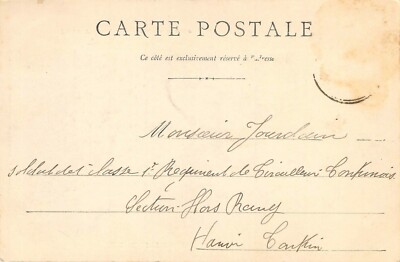 CARTE POSTALE
Ce côté est exclusivement réservé à l'Adresse
Monsieur Jourdain
soldat de 1e classe 1er Régiment de Tirailleurs Tonkinois
Section Hors Rang
Hanoi Tonkin